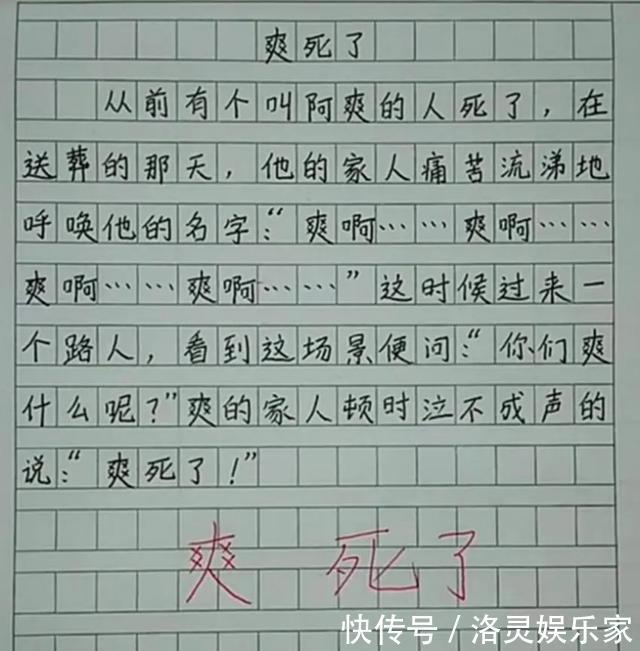 爽死了
从前有个叫阿爽的人死了，在
送葬的那天，他的家人痛苦流涕地
呼唤他的名字：“爽啊……爽啊……
爽啊……爽啊……”这时候过来一
个路人，看到这场景便问：“你们爽
什么呢？”爽的家人顿时泣不成声的
说：“爽死了！”
爽死了
快传号/洛灵娱乐家